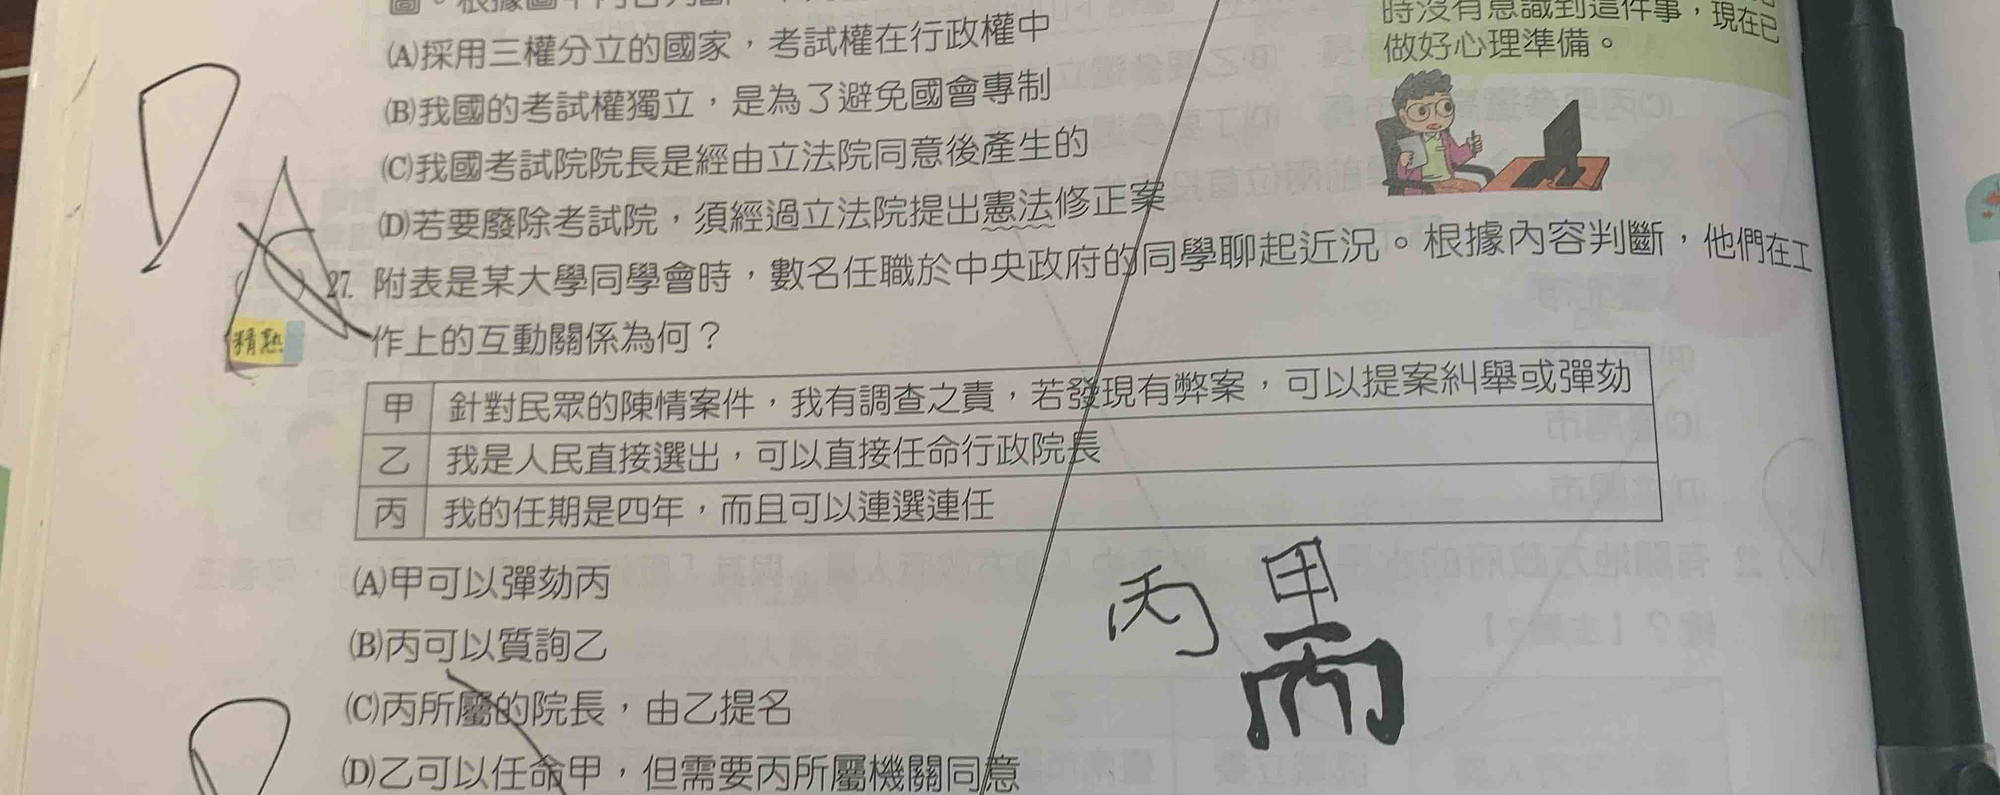 時沒有意識到這件事，現在已
做好心理準備。
(A)採用三權分立的國家，考試權在行政權中
(B)我國的考試權獨立，是為了避免國會專制
(C)我國考試院院長是經由立法院同意後產生的
(D)若要廢除考試院，須經過立法院提出憲法修正案
27. 附表是某大學同學會時，數名任職於中央政府的同學聊起近況。根據內容判斷，他們在工
精熟
作上的互動關係為何？
甲 針對民眾的陳情案件，我有調查之責，若發現有弊案，可以提案糾舉或彈劾
乙 我是人民直接選出，可以直接任命行政院長
丙 我的任期是四年，而且可以連選連任
(A)甲可以彈劾丙
(B)丙可以質詢乙
(C)丙所屬的院長，由乙提名
(D)乙可以任命甲，但需要丙所屬機關同意
丙 甲